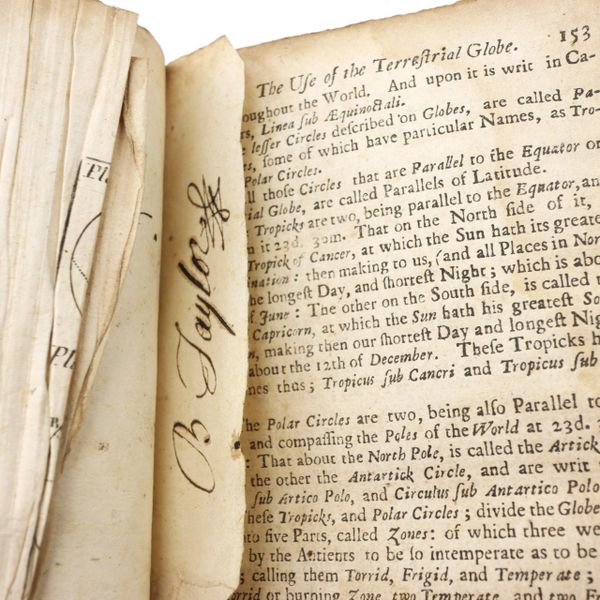 Pl
Pl
B Taylor
153
The Uſe of the Terreſtrial Globe.
oughout the World. And upon it is writ in Ca-
rs, Linea ſub Æquinoctiali.
leſſer Circles deſcribed on Globes, are called Pa-
es, ſome of which have particular Names, as Tro-
Polar Circles.
ll thoſe Circles that are Parallel to the Equator on
ial Globe, are called Parallels of Latitude.
Tropicks are two, being parallel to the Equator, and
it 23d. 30m. That on the North ſide of it,
Tropick of Cancer, at which the Sun hath its greate
ination: then making to us, (and all Places in Nor
he longeſt Day, and ſhorteſt Night; which is abo
f June: The other on the South ſide, is called t
Capricorn, at which the Sun hath his greateſt So
n, making then our ſhorteſt Day and longeſt Nig
about the 12th of December. Theſe Tropicks h
nes thus; Tropicus ſub Cancri and Tropicus ſub
he Polar Circles are two, being alſo Parallel to
and compaſſing the Poles of the World at 23d. 3
: That about the North Pole, is called the Artick
the other the Antartick Circle, and are writ
ſub Artico Polo, and Circulus ſub Antartico Polo
heſe Tropicks, and Polar Circles; divide the Globe
to five Parts, called Zones: of which three we
by the Antients to be ſo intemperate as to be
calling them Torrid, Frigid, and Temperate;
orrid or burning Zone, two Temperate, and two Fr